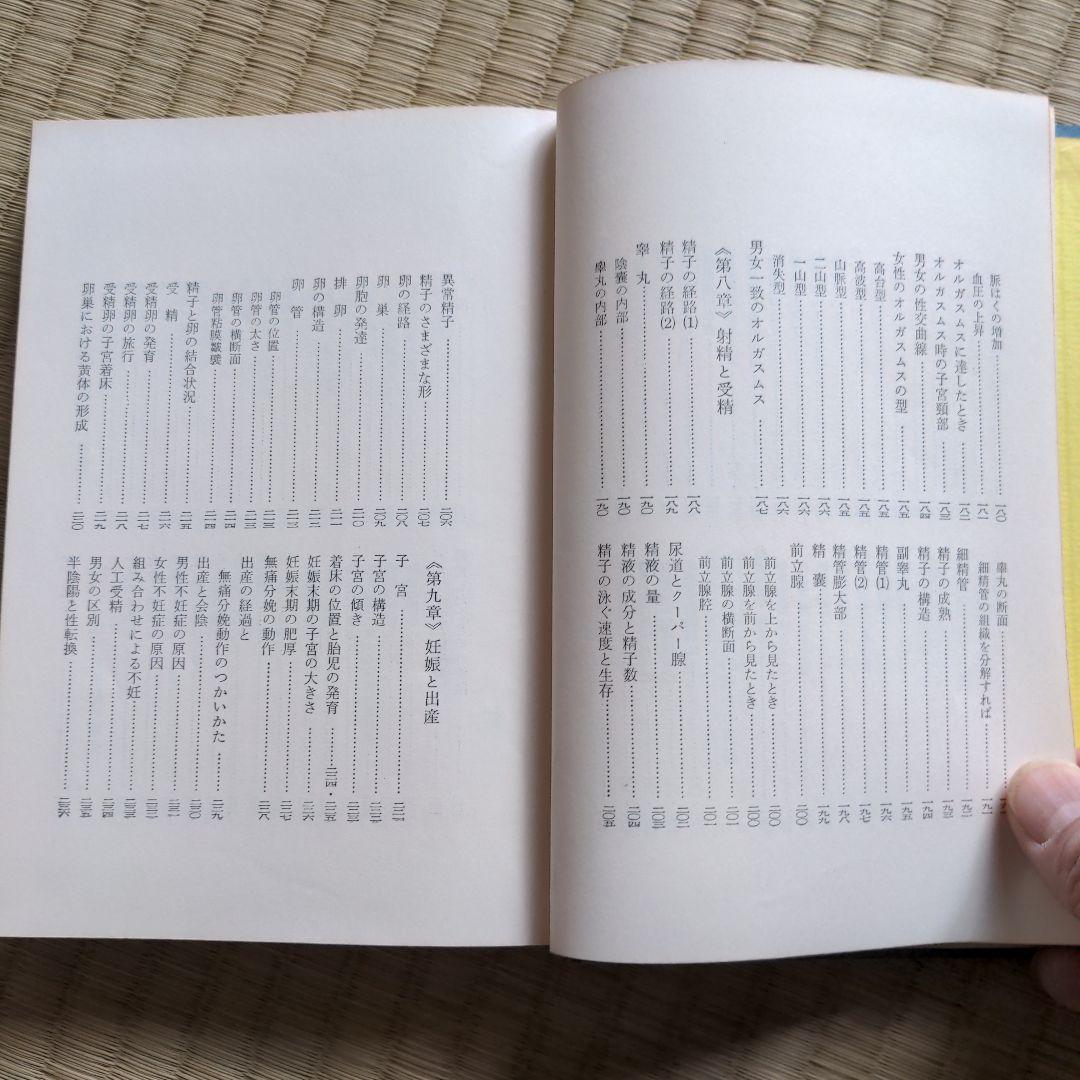 脈はくの増加……一八〇
血圧の上昇……一八一
オルガスムスに達したとき……一八二
オルガスムス時の子宮頸部……一八三
男女の性交曲線……一八四
女性のオルガスムスの型……一八五
高台型……一八五
高波型……一八五
山脈型……一八五
二山型……一八六
一山型……一八六
消失型……一八六
男女一致のオルガスムス……一八七
《第八章》射精と受精
精子の経路(1)……一八八
精子の経路(2)……一八九
睾丸……一九〇
陰嚢の内部……一九〇
睾丸の内部……一九〇
睾丸の断面……一九一
細精管の組織を分解すれば……一九一
細精管……一九二
精子の成熟……一九三
精子の構造……一九四
副睾丸……一九五
精管(1)……一九六
精管(2)……一九七
精管膨大部……一九八
精嚢……一九九
前立腺……二〇〇
前立腺を上から見たとき……二〇〇
前立腺を前から見たとき……二〇〇
前立腺の横断面……二〇一
前立腺腔……二〇一
尿道とクーパー腺……二〇二
精液の量……二〇三
精液の成分と精子数……二〇四
精子の泳ぐ速度と生存……二〇五
異常精子……二〇六
精子のさまざまな形……二〇七
卵の経路……二〇八
卵巣……二〇九
卵胞の発達……二一〇
排卵……二一一
卵の構造……二一二
卵管……二一三
卵管の位置……二一三
卵管の太さ……二一三
卵管の横断面……二一四
卵管粘膜皺襞……二一四
精子と卵の結合状況……二一五
受精……二一六
受精卵の発育……二一七
受精卵の旅行……二一八
受精卵の子宮着床……二一九
卵巣における黄体の形成……二二〇
《第九章》妊娠と出産
子宮……二二一
子宮の構造……二二二
子宮の傾き……二二三
着床の位置と胎児の発育……二二四・二二五
妊娠末期の子宮の大きさ……二二六
妊娠末期の肥厚……二二七
無痛分娩の動作……二二八
出産の経過と
無痛分娩動作のつかいかた……二二九
出産と会陰……二三〇
男性不妊症の原因……二三一
女性不妊症の原因……二三二
組み合わせによる不妊……二三三
人工受精……二三四
男女の区別……二三五
半陰陽と性転換……二三六